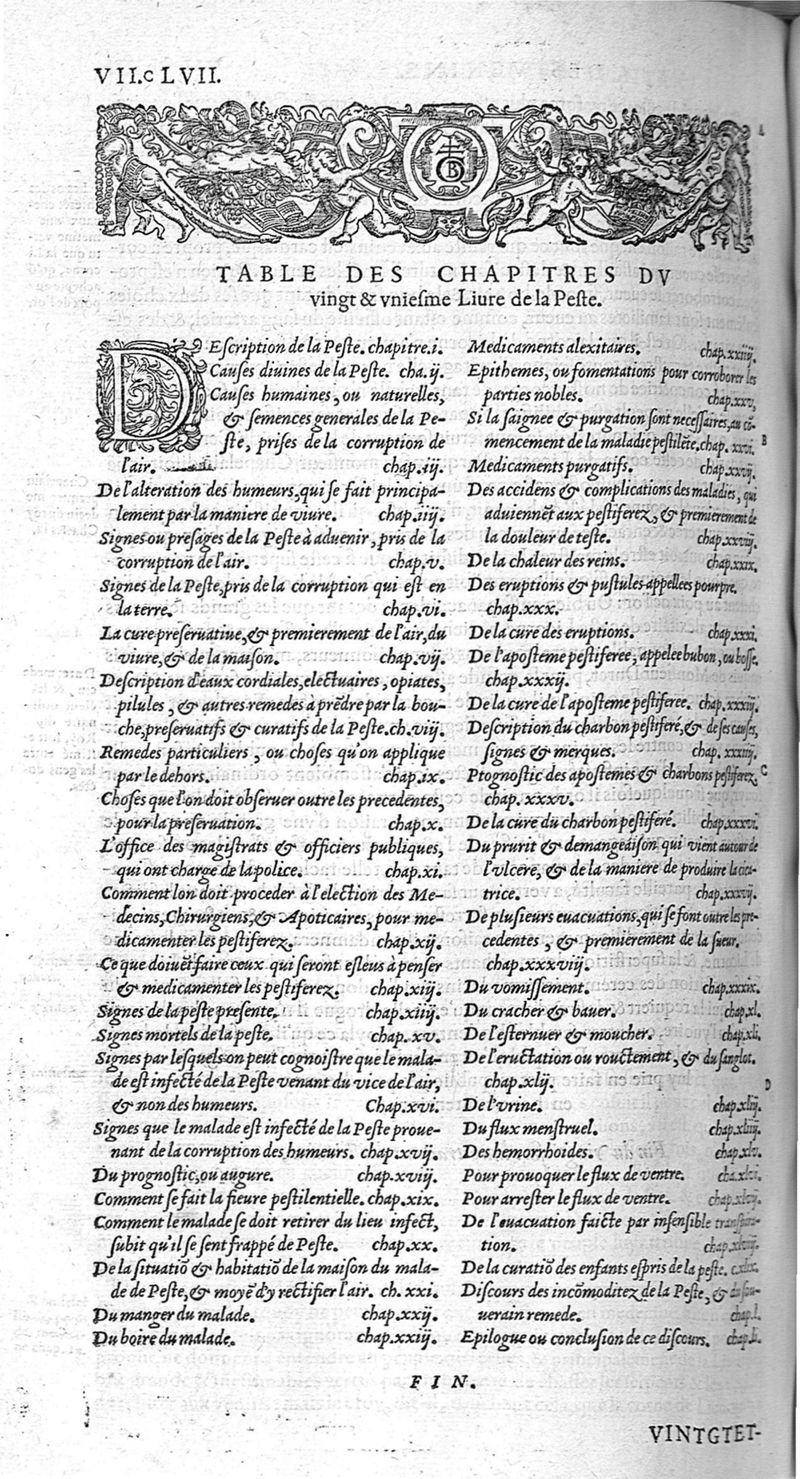 VII.c LVII.
TABLE DES CHAPITRES DV
vingt & vniesme Liure de la Peste.
DEscription de la Peste. chapitre.i.
Causes diuines de la Peste. cha.ij.
Causes humaines, ou naturelles,
& semences generales de la Pe-
ste, prises de la corruption de
l'air. chap.iij.
De l'alteration des humeurs, qui se fait principa-
lement par la maniere de viure. chap.iiij.
Signes ou presages de la Peste à aduenir, pris de la
corruption de l'air. chap.v.
Signes de la Peste, pris de la corruption qui est en
la terre. chap.vi.
La cure preseruatiue, & premierement de l'air, du
viure, & de la maison. chap.vij.
Description d'eaux cordiales, electuaires, opiates,
pilules, & autres remedes à prēdre par la bou-
che, preseruatifs & curatifs de la Peste. ch.viij.
Remedes particuliers, ou choses qu'on applique
par le dehors. chap.ix.
Choses que l'on doit obseruer outre les precedentes,
pour la preseruation. chap.x.
L'office des magistrats & officiers publiques,
qui ont charge de la police. chap.xi.
Comment lon doit proceder à l'election des Me-
decins, Chirurgiens, & Apoticaires, pour me-
dicamenter les pestiferez. chap.xij.
Ce que doiuēt faire ceux qui seront esleus à penser
& medicamenter les pestiferez. chap.xiij.
Signes de la peste presente. chap.xiiij.
Signes mortels de la peste. chap.xv.
Signes par lesquels on peut cognoistre que le mala-
de est infecté de la Peste venant du vice de l'air,
& non des humeurs. Chap.xvi.
Signes que le malade est infecté de la Peste proue-
nant de la corruption des humeurs. chap.xvij.
Du prognostic, ou augure. chap.xviij.
Comment se fait la fieure pestilentielle. chap.xix.
Comment le malade se doit retirer du lieu infect,
subit qu'il se sent frappé de Peste. chap.xx.
De la situatiō & habitatiō de la maison du mala-
de de Peste, & moyē d'y rectifier l'air. ch.xxi.
Du manger du malade. chap.xxij.
Du boire du malade. chap.xxiij.
Medicaments alexitaires. chap.xxiiij.
Epithemes, ou fomentations pour corroborer les
parties nobles. chap.xxv.
Si la saignee & purgation sont necessaires, au cō-
mencement de la maladie pestilēte. chap. xxvi.
Medicaments purgatifs. chap.xxvij.
Des accidens & complications des maladies, qui
aduiennēt aux pestiferez, & premierement de
la douleur de teste. chap.xxviij.
De la chaleur des reins. chap.xxix.
Des eruptions & pustules appellees pourpre.
chap.xxx.
De la cure des eruptions. chap.xxxi.
De l'aposteme pestiferee, appelee bubon, ou bosse.
chap.xxxij.
De la cure de l'aposteme pestiferee. chap.xxxiij.
Description du charbon pestiferé, & de ses causes,
signes & merques. chap. xxxiiij.
Ptognostic des apostemes & charbons pestiferez.
chap. xxxv.
De la cure du charbon pestiferé. chap.xxxvi.
Du prurit & demangeaison qui vient autour de
l'vlcere, & de la maniere de produire la cica-
trice. chap.xxxvij.
De plusieurs euacuations, qui se font outre les pre-
cedentes, & premierement de la sueur.
chap.xxxviij.
Du vomissement. chap.xxxix.
Du cracher & bauer. chap.xl.
De l'esternuer & moucher. chap.xli.
De l'eructation ou rouctement, & du sanglot.
chap.xlij.
De l'vrine. chap.xliij.
Du flux menstruel. chap.xliiij.
Des hemorrhoides. chap.xlv.
Pour prouoquer le flux de ventre. cha.xlvi.
Pour arrester le flux de ventre. chap.xlvij.
De l'euacuation faicte par insensible transpira-
tion. chap.xlviij.
De la curatiō des enfants espris de la peste. c.xlix.
Discours des incōmoditez de la Peste, & du sou-
uerain remede. chap.l.
Epilogue ou conclusion de ce discours. chap.li.
FIN.
VINTGTET-